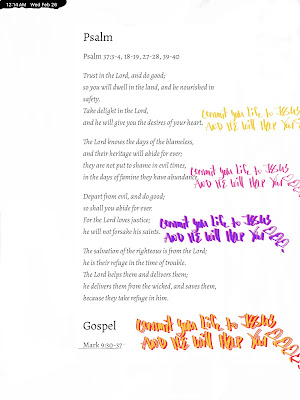 12:14 AM Wed Feb 26
Psalm
Psalm 37:3-4, 18-19, 27-28, 39-40
Trust in the Lord, and do good;
so you will dwell in the land, and be nourished in
safety.
Take delight in the Lord,
and he will give you the desires of your heart.
commit you life to JESUS
AND HE will Help You
The Lord knows the days of the blameless,
and their heritage will abide for ever;
they are not put to shame in evil times,
in the days of famine they have abundance
commit you life to JESUS
AND HE will Help You
Depart from evil, and do good;
so shall you abide for ever.
For the Lord loves justice;
he will not forsake his saints.
commit you life to JESUS
AND HE will Help You
The salvation of the righteous is from the Lord;
he is their refuge in the time of trouble.
The Lord helps them and delivers them;
he delivers them from the wicked, and saves them,
because they take refuge in him.
Gospel
Mark 9:30-37
commit you life to JESUS
AND HE will Help You